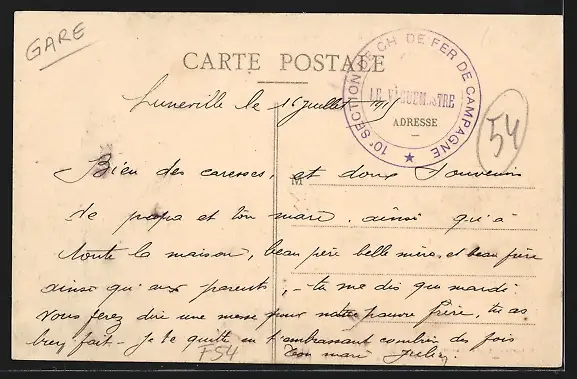 GARE
CARTE POSTALE
10e SECTION DE CH. DE FER DE CAMPAGNE
LE VAGUEMESTRE
ADRESSE
54
Luneville le 16 juillet
Bien des caresses, et doux souvenirs
de papa et ton mari, ainsi qu'à
toute la maison, beau père belle mère, et beau frère
ainsi qu'aux parents, - tu me dis que mardi
vous ferez dire une messe pour notre pauvre frère, tu as
bien fait - je te quitte en t'embrassant combien des fois
Ton mari Julien
F54